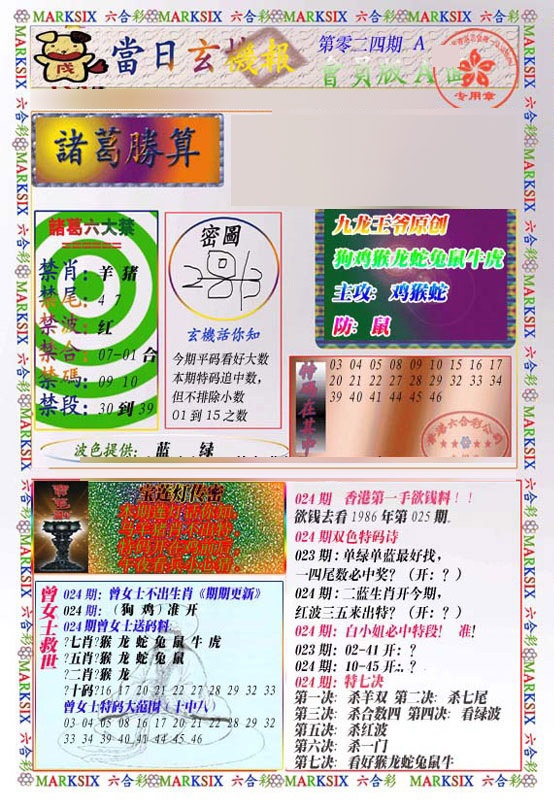 MARKSIX 六合彩 MARKSIX 六合彩 MARKSIX 六合彩 MARKSIX 六合彩
當日玄機報
第零二四期 A
會員版A
专用章
諸葛勝算
諸葛六大禁
禁肖：羊 猪
禁尾：4 7
禁波：红
禁合：07-01 合
禁碼：09 10
禁段：30 到 39
密圖
玄機话你知
今期平码看好大数
本期特码追中数，
但不排除小数
01 到 15 之数
九龙王爷原创
狗鸡猴龙蛇兔鼠牛虎
主攻：鸡猴蛇
防：鼠
特碼在其中
03 04 05 08 09 10 15 16 17
20 21 22 27 28 29 32 33 34
39 40 41 44 45 46
波色提供： 蓝 绿
宝莲灯传密
曾女士救世
024 期：曾女士不出生肖《期期更新》
024 期：（狗 鸡）准 开
024 期曾女士送码料：
?七肖?猴 龙 蛇 兔 鼠 牛 虎
?五肖?猴 龙 蛇 兔 鼠
?二肖?猴 龙
?十码?16 17 20 21 22 27 28 29 32 33
曾女士特码大范围（十中八）
03 04 05 08 16 17 20 21 22 28 29 32
33 34 39 40 41 44 45 46
024 期 香港第一手欲钱料！！
欲钱去看 1986 年第 025 期。
024 期双色特码诗
023 期：单绿单蓝最好找，
一四尾数必中奖？（开：？）
024 期：二蓝生肖开今期，
红波三五来出特？（开：？）
024 期：白小姐必中特段！ 准！
023 期：02-41 开：？
024 期：10-45 开：.？
024 期：特七决
第一决：杀羊双 第二决：杀七尾
第三决：杀合数四 第四决：看绿波
第五决：杀红波
第六决：杀一门
第七决：看好猴龙蛇兔鼠牛
MARKSIX 六合彩 MARKSIX 六合彩 MARKSIX 六合彩 MARKSIX 六合彩